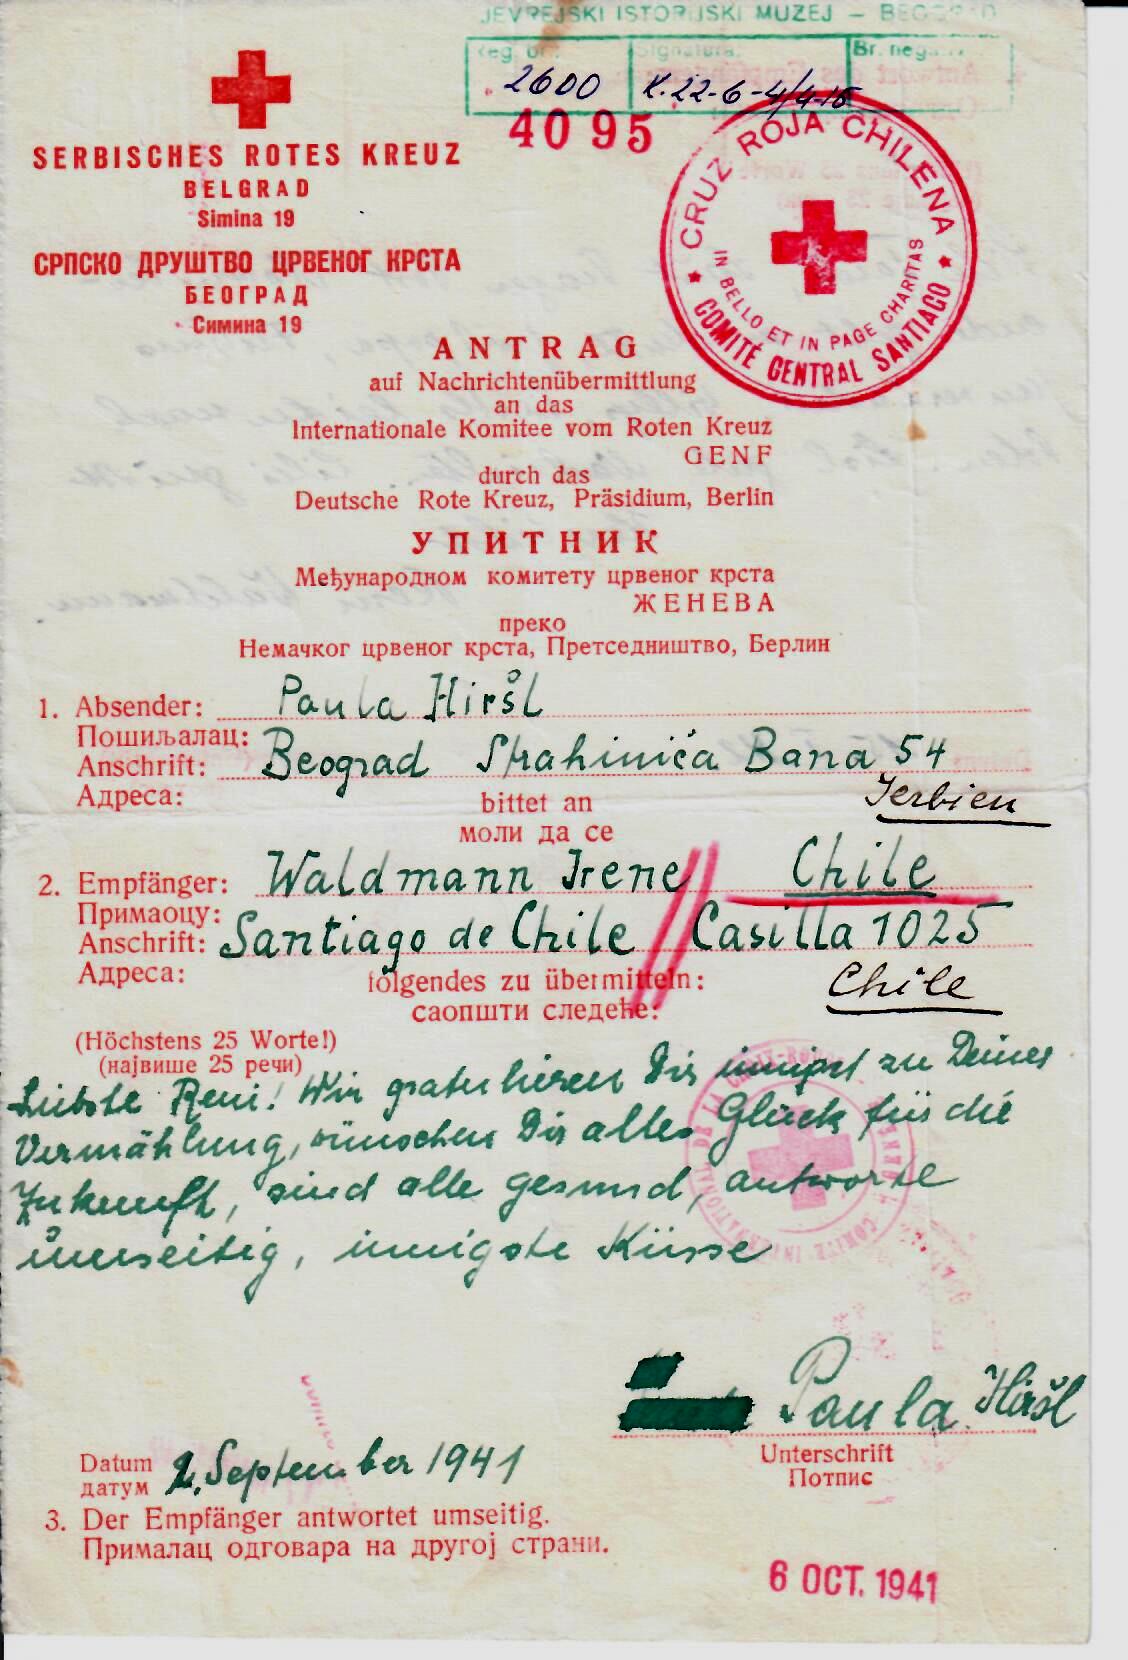 JEVREJSKI ISTORIJSKI MUZEJ – BEOGRAD
Reg. br. Signatura: Br. neg.
2600 K.22-6-4/4-15
4095
CRUZ ROJA CHILENA
IN BELLO ET IN PAGE CHARITAS
COMITÉ CENTRAL SANTIAGO
SERBISCHES ROTES KREUZ
BELGRAD
Simina 19
СРПСКО ДРУШТВО ЦРВЕНОГ КРСТА
БЕОГРАД
Симина 19
ANTRAG
auf Nachrichtenübermittlung
an das
Internationale Komitee vom Roten Kreuz
GENF
durch das
Deutsche Rote Kreuz, Präsidium, Berlin
УПИТНИК
Међународном комитету црвеног крста
ЖЕНЕВА
преко
Немачког црвеног крста, Претседништво, Берлин
1. Absender: Paula Hiršl
Пошиљалац:
Anschrift: Beograd Strahinića Bana 54
Адреса:
Serbien
bittet an
моли да се
2. Empfänger: Waldmann Irene Chile
Примаоцу:
Anschrift: Santiago de Chile Casilla 1025
Адреса:
folgendes zu übermitteln: Chile
саопшти следеће:
(Höchstens 25 Worte!)
(највише 25 речи)
Liebste Reni! Wir gratulieren Dir innigst zu Deiner
Vermählung, wünschen Dir alles Glück für die
Zukunft, sind alle gesund, antworte
umseitig, innigste Küsse
Paula Hiršl
Unterschrift
Потпис
Datum 2. September 1941
датум
3. Der Empfänger antwortet umseitig.
Прималац одговара на другој страни.
6 OCT. 1941